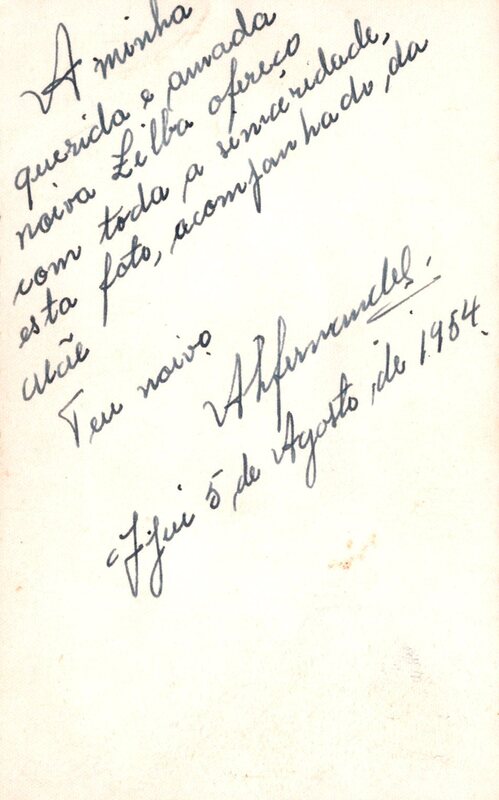 A minha
querida e amada
noiva Zilba ofereço
com toda a sinceridade,
esta foto, acompanhado, da
Mãe
Teu noivo
Ahfernandes.
Ijui 5 de Agosto, de 1954.